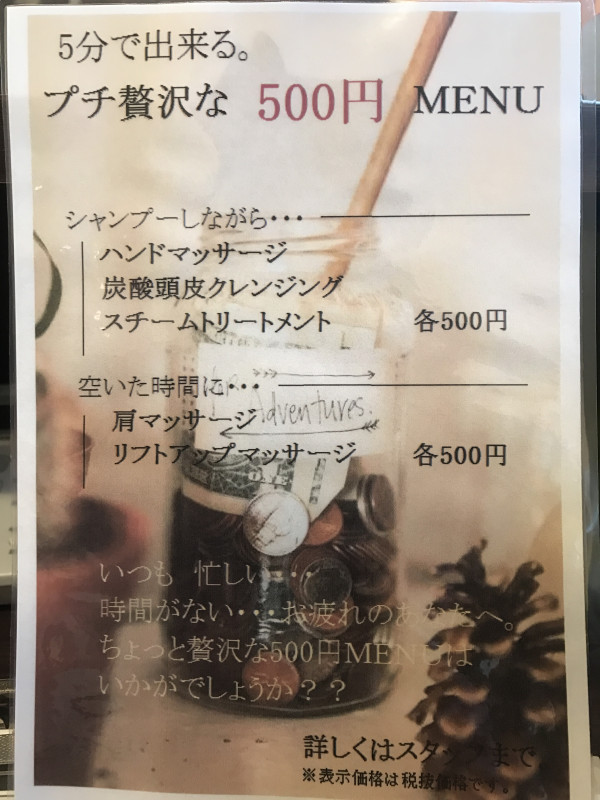 5分で出来る。
プチ贅沢な 500円 MENU
シャンプーしながら・・・
ハンドマッサージ
炭酸頭皮クレンジング
スチームトリートメント 各500円
空いた時間に・・・
Adventures.
肩マッサージ
リフトアップマッサージ 各500円
いつも 忙しい・・・
時間がない・・・お疲れのあなたへ。
ちょっと贅沢な500円MENUは
いかがでしょうか？？
詳しくはスタッフまで
※表示価格は税抜価格です。